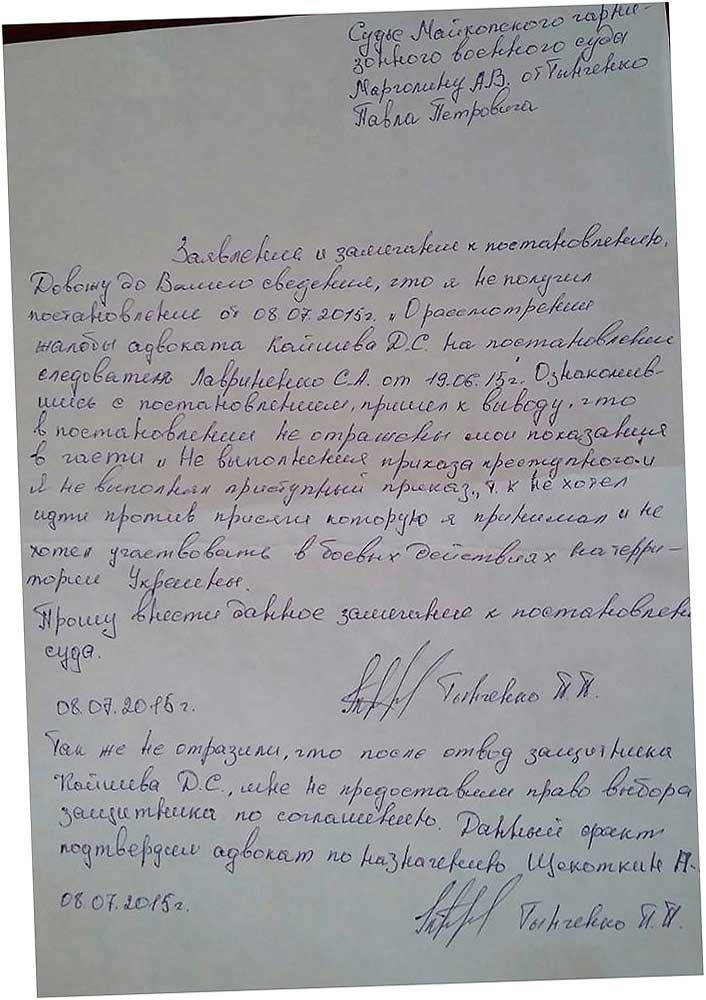 Судье Майкопского гарни-
зонного военного суда
Марголину А.В. от Тынченко
Павла Петровича
Заявление и замечание к постановлению.
Довожу до Вашего сведения, что я не получил
постановление от 08.07.2015г. „О рассмотрении
жалобы адвоката Кайшева Д.С. на постановление
следователя Лавриненко С.А. от 19.06.15г." Ознакомив-
шись с постановлением, пришел к выводу, что
в постановлении не отражены мои показания
в части „Не выполнения приказа преступного"
Я не выполнял приступный приказ, т.к не хотел
идти против присяги которую я принимал и не
хотел участвовать в боевых действиях на терри-
тории Украины.
Прошу внести данное замечание к постановлени
суда.
08.07.2015г. Тынченко П.П.
Так же не отразили, что после отвод защитника
Кайшева Д.С., мне не предоставили право выбора
защитника по соглашению. Данный факт
подтвердил адвокат по назначению Щекоткин А.
08.07.2015г. Тынченко П.П.